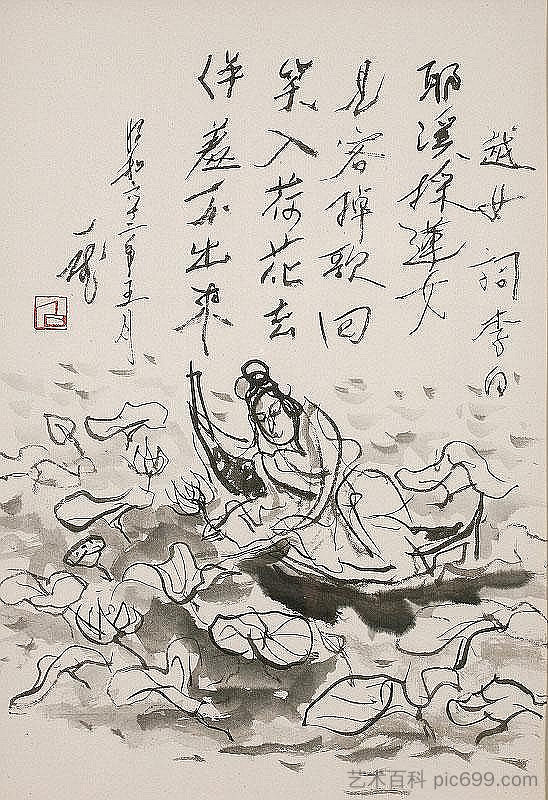 越女詞 李白
耶溪採蓮女
見客棹歌回
笑入荷花去
佯羞不出来
昭和六十二年五月
艺术百科 pic699.com